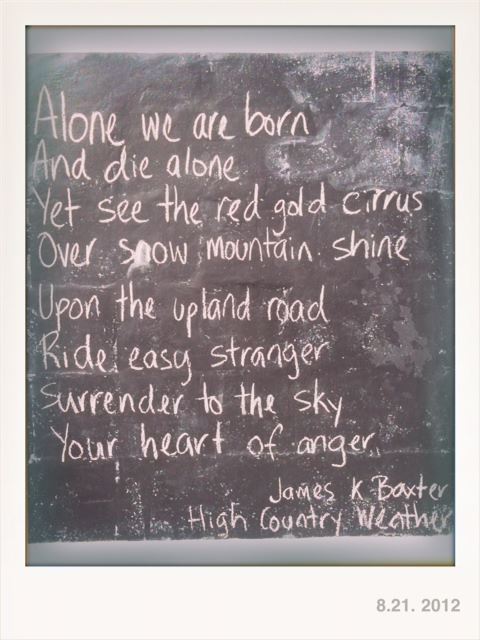 Alone we are born
And die alone
Yet see the red gold cirrus
Over snow mountain shine
Upon the upland road
Ride easy stranger
Surrender to the sky
Your heart of anger.
James K Baxter
High Country Weather
8.21. 2012